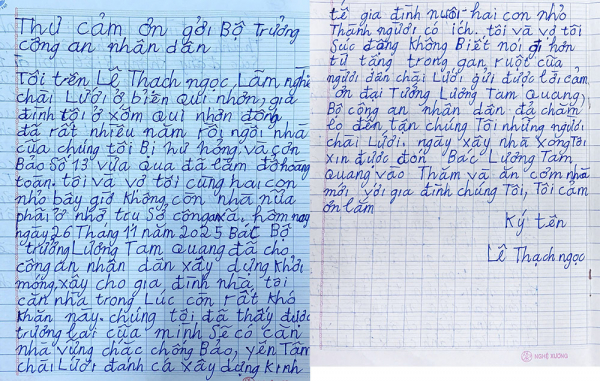 Thư cảm ơn gởi Bộ Trưởng
công an nhân dân
Tôi trên Lê Thạch ngọc, Làm nghề
chài Lưới ở biển Qui nhơn, gia
đình tôi ở xóm Qui nhơn đông
đã rất nhiều năm rồi ngôi nhà
của chúng tôi Bị hư hỏng và cơn
Bão Số 13 vừa qua đã làm đổ hoàng
toàn. tôi và vở tôi cũng hai con
nhỏ bây giờ không còn nhà nữa
phải ở nhờ trụ Sở công an xã. hôm nay
ngày 26 Tháng 11 năm 2025 Bác Bộ
trưởng Lương Tam Quang đã cho
công an nhân dân xây dựng khởi
móng, xây cho gia đình nhà tôi
căn nhà trong Lúc còn rất khó
khăn này. chúng tôi đã thấy được
trưởng lai của minh Sẽ có căn
nhà vững chắc chống Bão, yên Tâm
chài Lưới đánh cá xây dựng kinh
tế gia đình nuôi hai con nhỏ
Thành người có ích. tôi và vở tôi
Sức động không Biết nói gì hơn
từ tăng trong gan ruột của
người dân chài Lưới gửi được lời cảm
ơn đại Tướng Lương Tam Quang,
Bộ công an nhân dân đã chăm
lo đến Tận chúng Tôi những người
chài Lưới. ngày xây nhà xong Tôi
xin được đón Bác Lương Tam
Quang vào Thăm và ăn cơm nhà
mới với gia đình chúng Tôi, Tôi cảm
ơn lắm
Ký tên
Lê Thạch ngọc
NGHỆ XƯƠNG